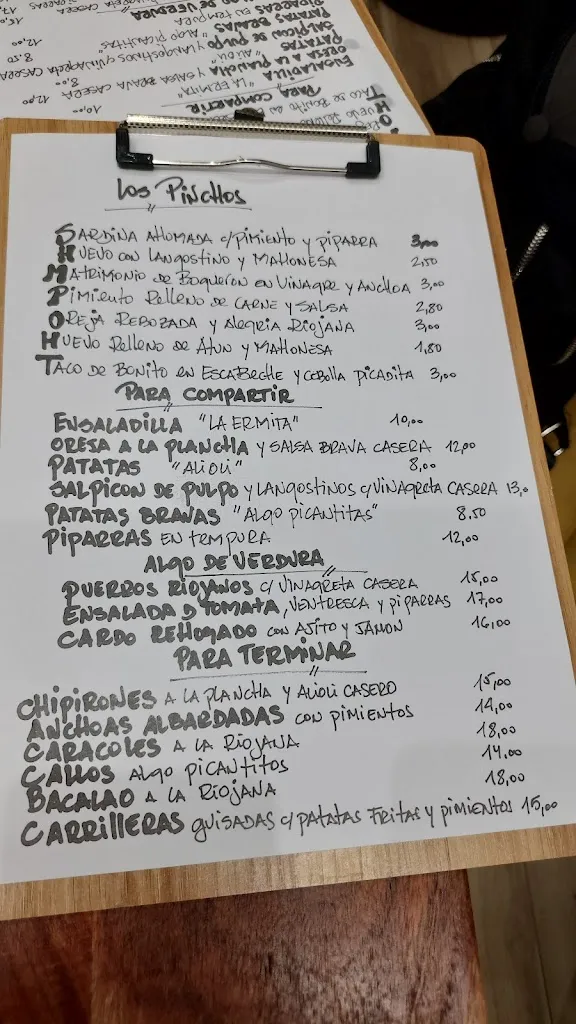 Los Pinchos
Sardina Ahumada c/pimiento y piparra 3,00
Huevo con Langostino y Mahonesa 2,50
Matrimonio de Boqueron en Vinagre y Anchoa 3,00
Pimiento Relleno de Carne y Salsa 2,80
Oreja Rebozada y Alegria Riojana 3,00
Huevo Relleno de Atun y Mahonesa 1,80
Taco de Bonito en Escabeche y cebolla picadita 3,00
PARA COMPARTIR
ENSALADILLA "LA ERMITA" 10,00
OREJA A LA PLANCHA y SALSA BRAVA CASERA 12,00
PATATAS "ALIOLI" 8,00
SALPICON DE PULPO y LANGOSTINOS c/VINAGRETA CASERA 13,0
PATATAS BRAVAS "ALGO PICANTITAS" 8.50
PIPARRAS EN TEMPURA 12,00
ALGO DE VERDURA
PUERROS RIOJANOS c/ VINAGRETA CASERA 15,00
ENSALADA D TOMATA, VENTRESCA y PIPARRAS 17,00
CARDO REHOGADO con AJITO y JAMON 16,00
PARA TERMINAR
CHIPIRONES A LA PLANCHA y ALIOLI CASERO 15,00
ANCHOAS ALBARDADAS con PIMIENTOS 14,00
CARACOLES A LA RIOJANA 18,00
CALLOS ALGO PICANTITOS 14,00
BACALAO A LA RIOJANA 18,00
CARRILLERAS guisadas c/ patatas fritas y pimientos 15,00